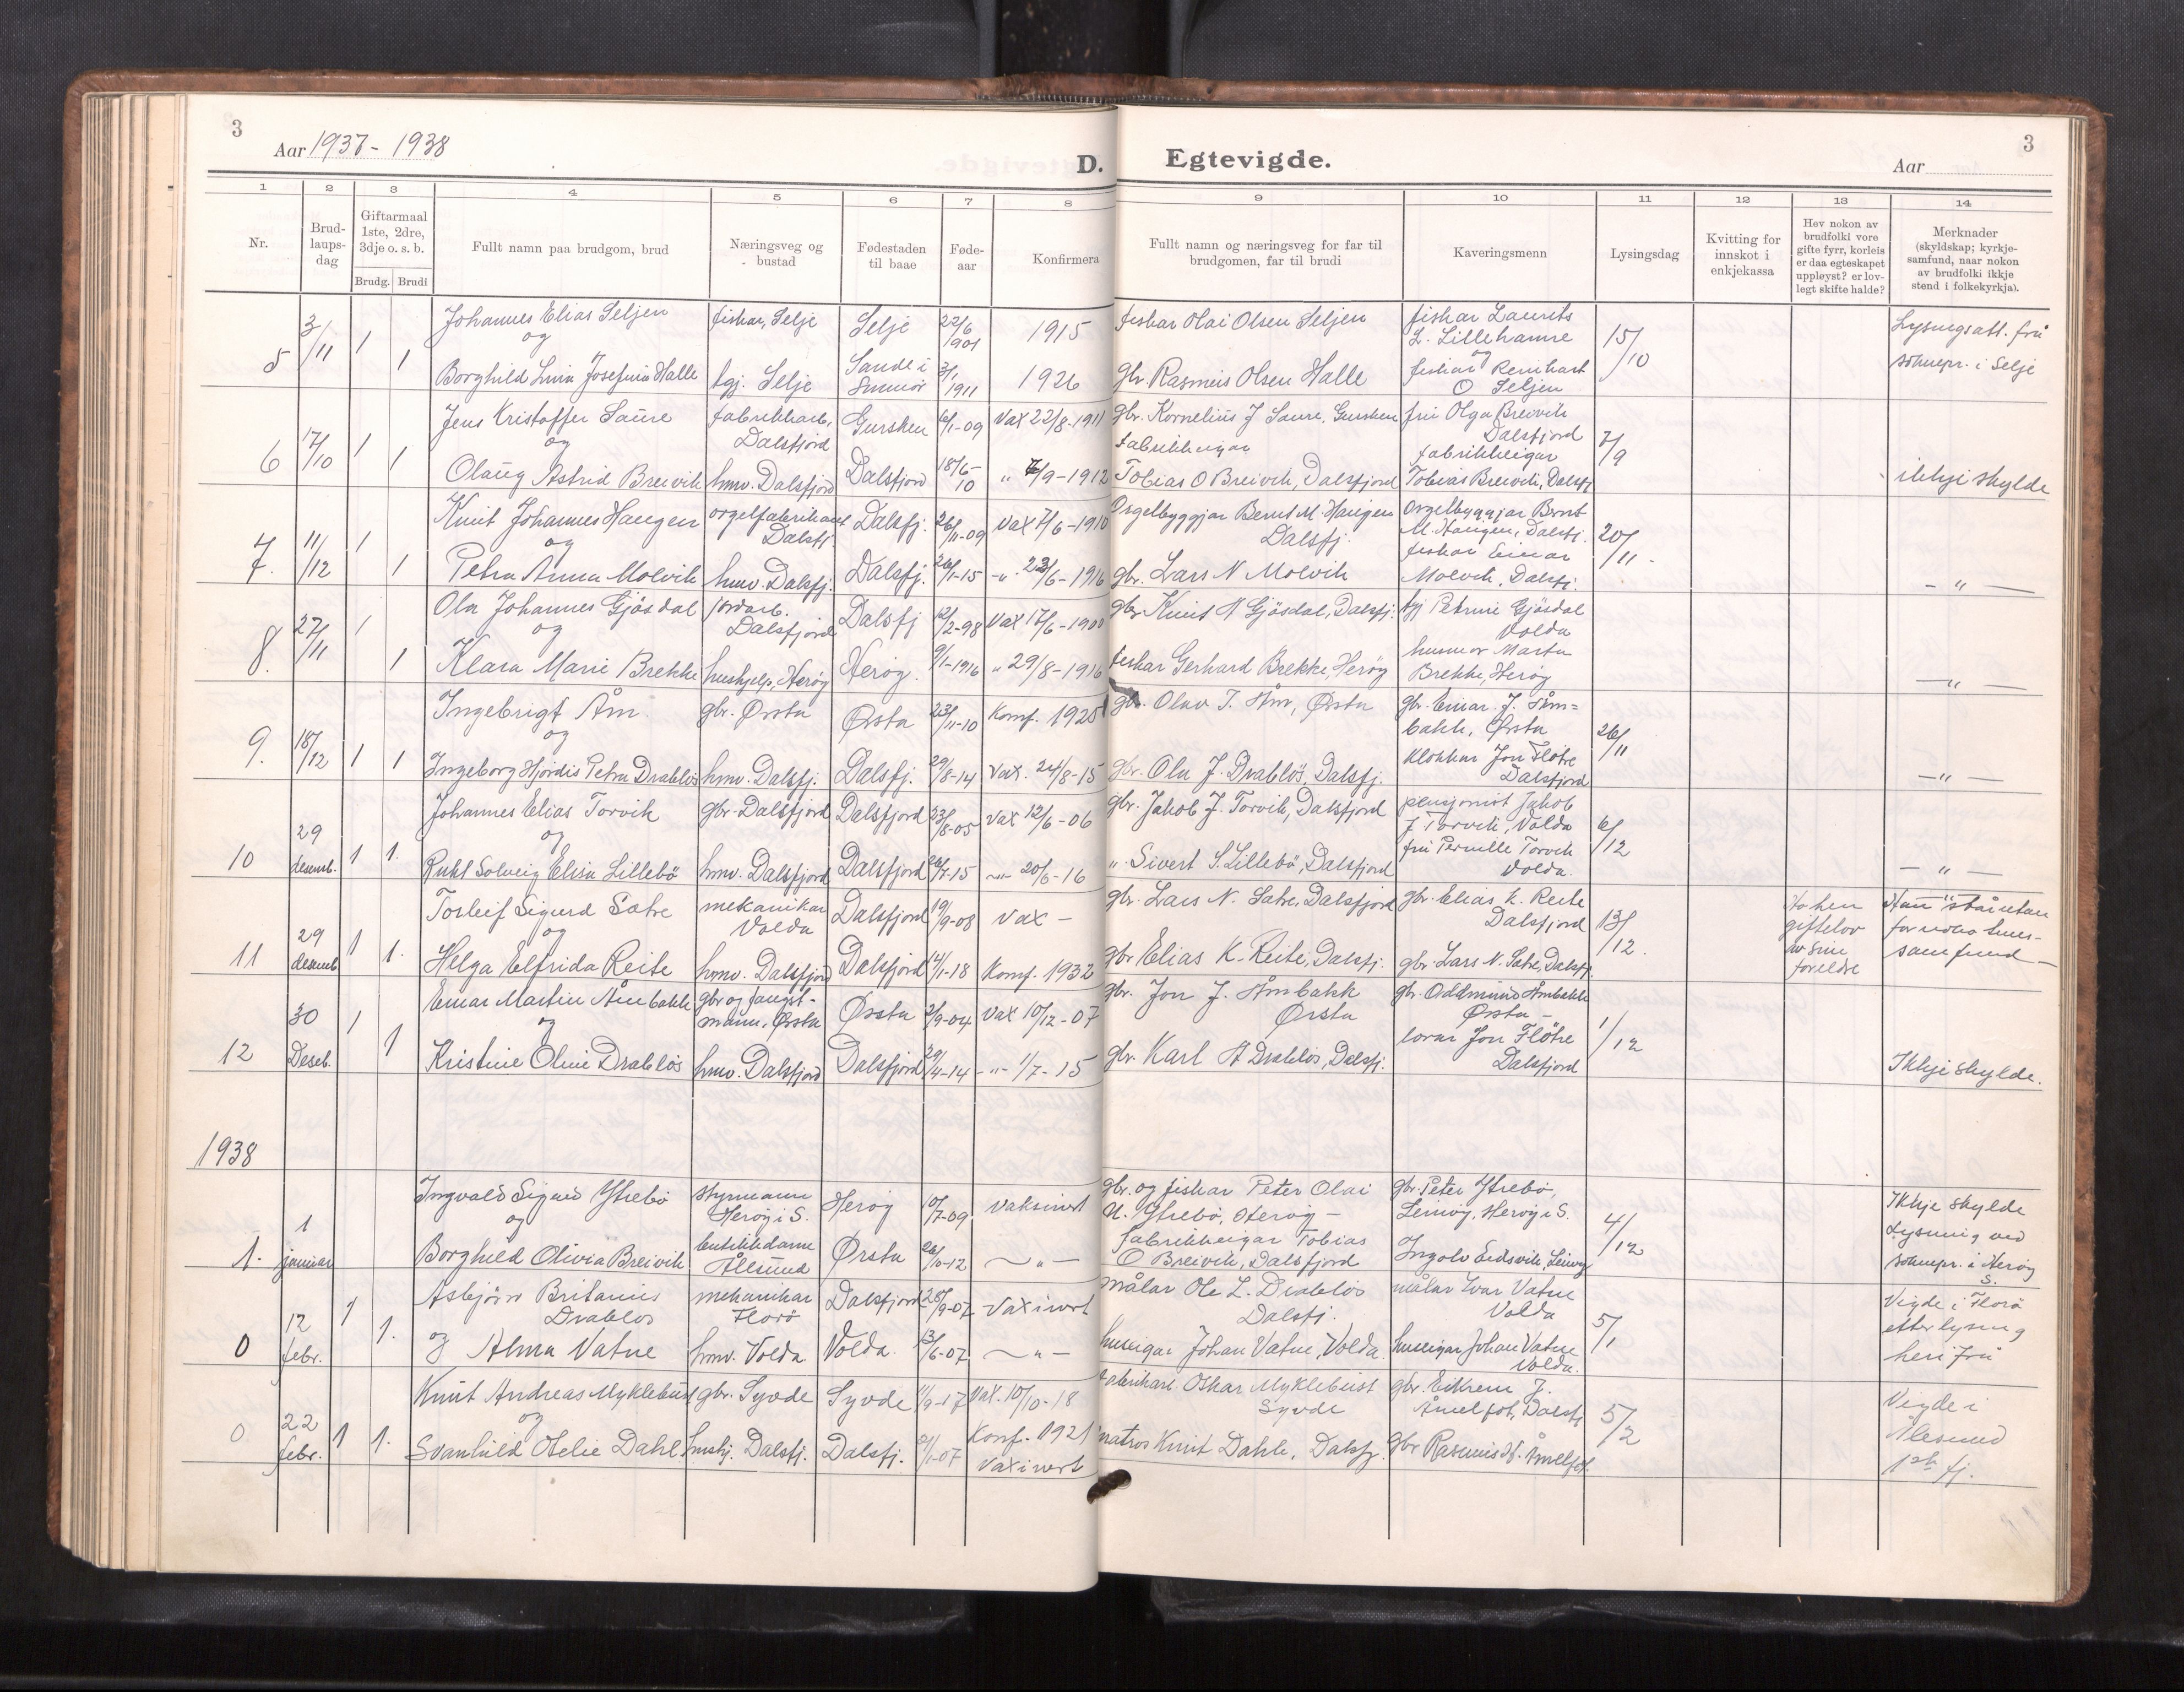 3
Aar 1937 - 1938
D.
Egtevigde.
Aar
3
1 2 3 4 5 6 7 8 9 10 11 12 13 14
Nr.
Brud-
laups-
dag
Giftarmaal
1ste, 2dre,
3dje o. s. b.
Brudg. Brudi
Fullt namn paa brudgom, brud
Næringsveg og
bustad
Fødestaden
til baae
Føde-
aar
Konfirmera
Fullt namn og næringsveg for far til
brudgomen, far til brudi
Kaveringsmenn
Lysingsdag
Kvitting for
innskot i
enkjekassa
Hev nokon av
brudfolki vore
gifte fyrr, korleis
er daa egteskapet
uppløyst? er lov-
legt skifte halde?
Merknader
(skyldskap; kyrkje-
samfund, naar nokon
av brudfolki ikkje
stend i folkekyrkja).
5
3/11
1
1
Johannes Elias Seljen
og
Borghild Josefina Halle
fiskar, Selje
tgj. Selje
Selje
Sande i
22/6
1901
3/1
1911
1915
1926
fiskar Olai Olsen Seljen
gbr. Rasmus Olsen Halle
fiskar Laurits
L. Lillehamre
og
fiskar Reinhart
O Seljen
15/10
Lysingsatt. frå
soknepr. i Selje
6
17/10
1
1
Jens Kristoffer Saure
og
Olaug Astrid Breivik
fabrikkarb.
Dalsfjord
hmv. Dalsfjord
Gursken
Dalsfjord
6/1-09
18/6-
10
Vax 22/8-1911
" 7/9-1912
gbr. Kornelius J Saure, Gursken
fabrikkeigar
Tobias O Breivik, Dalsfjord
fru Olga Breivik
Dalsfjord
fabrikkeigar
Tobias Breivik, Dalsfj
7/9
ikkje skylde
7.
11/12
1
1
Knut Johannes Haugen
og
Petra Anna Molvik
orgelfabrikant
Dalsfj.
hmv. Dalsfj.
Dalsfj.
Dalsfj.
26/11-09
26/1-15
Vax 7/6-1910
-"- 23/6-1916
Orgelbyggjar Bernt M. Haugen
Dalsfj.
gbr. Lars N Molvik
Orgelbyggjar Bernt
M. Haugen, Dalsfj.
fiskar Einar
Molvik, Dalsfj.
20/11 -
- " -
8.
27/11
1
1
Ola Johannes Gjøsdal
og
Klara Marie Brekke
jordarb.
Dalsfjord
hushjelp, Herøy
Dalsfj
Herøy.
12/2-98
9/1-1916
Vax 17/6-1900
" 29/8-1916
gbr Knut N Gjøsdal, Dalsfj.
fiskar Gerhard Brekke, Herøy
tgj Petrine Gjøsdal
Volda
husmor Marta
Brekke, Herøy
- " -
9.
18/12
1
1
Ingebrigt Åm
og
Ingeborg Hjørdis Petra Drabløs
gbr. Ørsta
hmv. Dalsfj.
Ørsta
Dalsfj.
23/11-10
29/8-14
Konf. 1925
Vax. 24/8-15
gbr. Olav T. Åm, Ørsta
gbr. Ola J. Drabløs, Dalsfj.
gbr. Einar J. Åm=
bakk, Ørsta
Klokkar Jon Fløtre
Dalsfjord
26/11
- " -
10
29
desemb.
1
1.
Johannes Elias Torvik
og
Solveig Elisa Lillebø
gbr. Dalsfjord
hmv. Dalsfjord
Dalsfjord
Dalsfjord
23/8-05
26/7-15
Vax 12/6-06
-"- 20/6-16
gbr. Jakob J. Torvik, Dalsfjord
" Sivert S. Lillebø, Dalsfjord
pensjonist Jakob
J Torvik, Volda
fru Pernille Torvik
Volda.
6/12
- " -
11
29
desemb
1
1.
Torleif Sigurd Satre
og
Helga Elfrida Reite
mekanikar
Volda
hmv. Dalsfjord
Dalsfjord
Dalsfjord
19/9-08
14/1-18
Vax -
Konf. 1932
gbr. Lars N. Satre, Dalsfjord
gbr. Elias K. Reite, Dalsfj.
gbr. Elias K. Reite
Dalsfjord
gbr. Lars N. Satre, Dalsfj.
13/12.
Ho hev
giftelov
av sine
foreldre
Han står utan
for noko trues-
samfund -
12
30
Deseb.
1
1
Einar Martin Åmbakk
og
Kristine Oline Drabløs
gbr og fangst-
mann, Ørsta
hmv. Dalsfjord
Ørsta
Dalsfjord
2/9-04
29/4-14
Vax 10/12-07
-"- 1/7-15
gbr. Jon J. Åmbakk
Ørsta
gbr. Karl A Drabløs, Dalsfj.
gbr. Oddmund Åmbakk
Ørsta -
lærar Jon Fløtre
Dalsfjord
1/12
Ikkje skylde.
1938
1.
1
januar
Ingvald Sigurd Ytrebø
og
Borghild Olivia Breivik
styrmann
Herøy i S.
butikkdame
Ålesund
Herøy
Ørsta
10/7-09
Vaksinert
- " -
gbr. og fiskar Peter Olai
Ytrebø, Herøy -
fabrikkeigar Tobias
O Breivik, Dalsfjord
gbr. Peter Ytrebø,
Leinøy, Herøy i S.
Ingolv Eidsvik, Leinøy
4/12
Ikkje skylde
Lysning ved
soknepr. i Herøy
S.
0
12
febr.
1
1.
Asbjørn Britanus
Drabløs
og Alma Vatne
mekanikar
Florø
hmv. Volda
Dalsfjord
Volda.
13/6-07
Vaxinert
- " -
målar Ole L. Drabløs
Dalsfj.
huseigar Johan Vatne, Volda.
målar Ivar Vatne
Volda
huseigar Johan Vatne
Volda.
5/1
Vigde i Florø
etter lysing
heri frå
0
22
febr.
1
1.
Knut Andreas Myklebust
og
Svanhild Otelie Dahl
gbr. Syvde
hushj. Dalsfj.
Syvde
Dalsfj.
Vax. 10/10-18
Konf. 1921
Vaxinert
fabrikarb. Oskar Myklebust
Syvde
matros Knut Dahle, Dalsfj.
gbr. J.
Åmelfot, Dalsfj
gbr Rasmus Åmelfot.
5/2
Vigde i
Ålesund